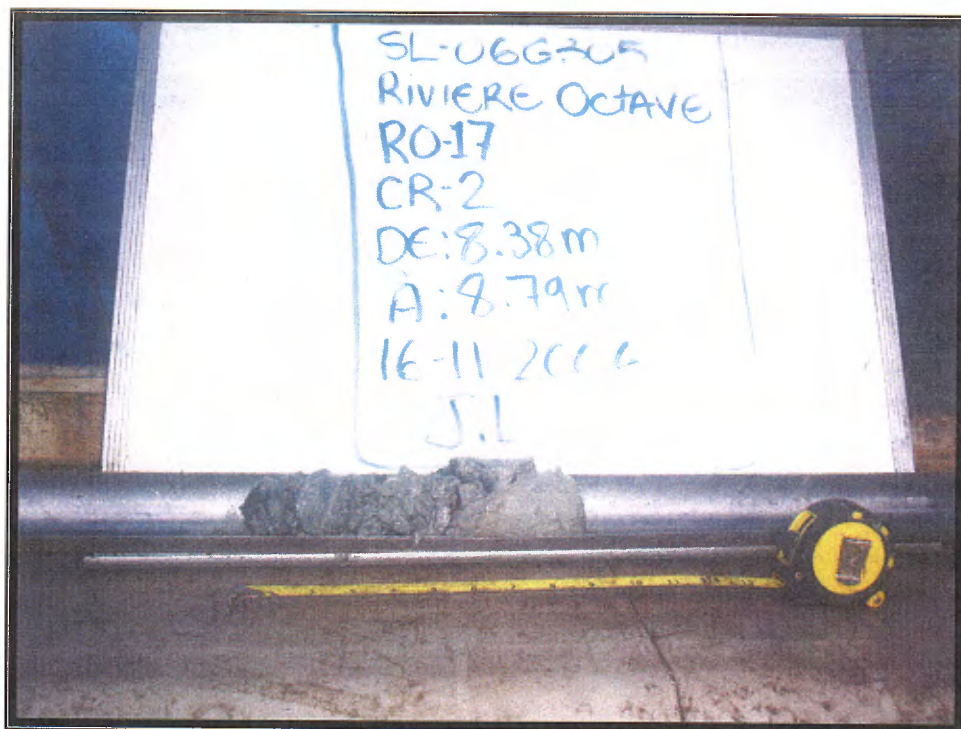 SL-06G305
RIVIERE OCTAVE
RO-17
CR-2
DE: 8.38m
À: 8.79m
16-11 2006
J.L